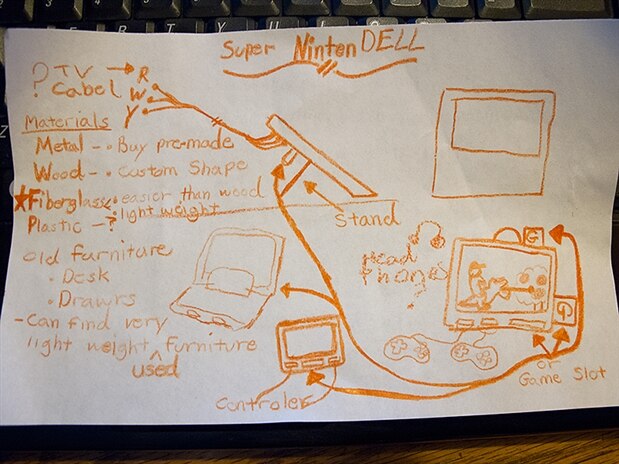 Super NintenDELL
? TV → R
Cabel W
Y
Materials
Metal - • Buy pre-made
Wood - • Custom Shape
★Fiberglass • easier than wood
• light weight
Plastic - ?
old furniture
• Desk
• Drawrs
- Can find very
light weight ^ furniture
used
Stand
Head
Phones
G
G
or
Game Slot
Controler